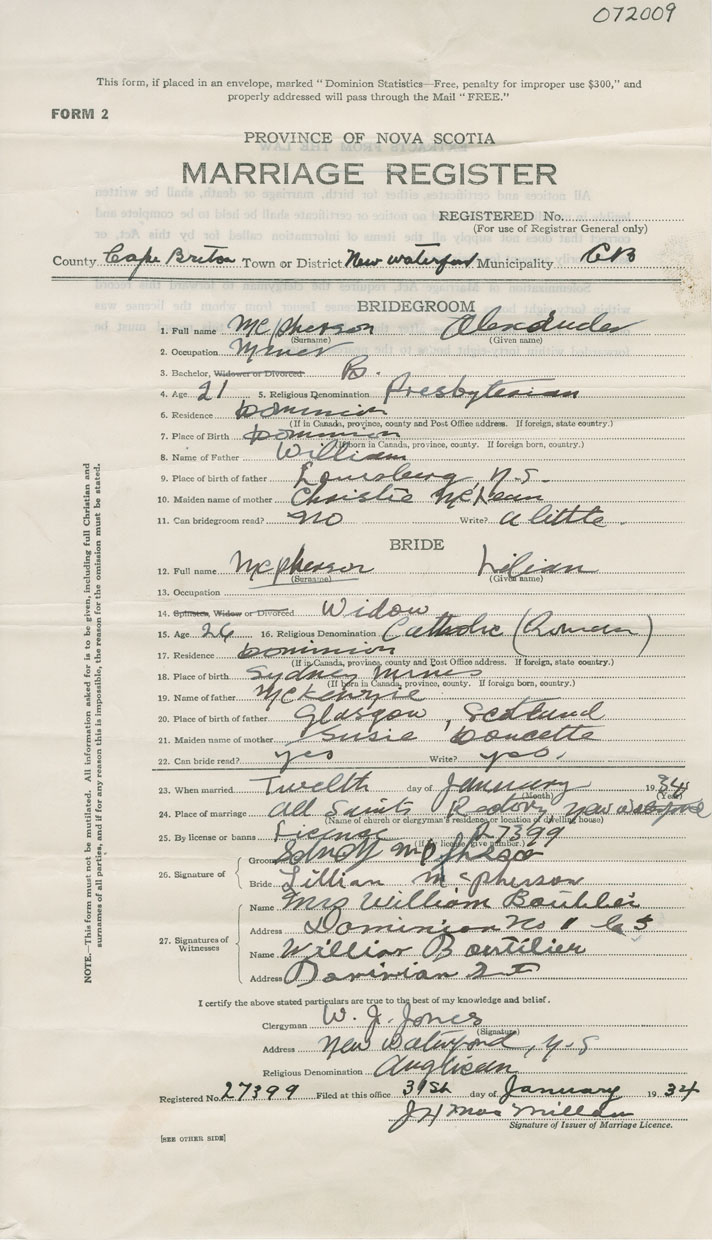 072009
This form, if placed in an envelope, marked "Dominion Statistics—Free, penalty for improper use $300," and
properly addressed will pass through the Mail "FREE."
FORM 2
PROVINCE OF NOVA SCOTIA
MARRIAGE REGISTER
REGISTERED No.
(For use of Registrar General only)
County Cape Breton Town or District New Waterford Municipality CB
BRIDEGROOM
1. Full name McPherson Alexander
(Surname) (Given name)
2. Occupation Miner
3. Bachelor, Widower or Divorced B.
4. Age 21 5. Religious Denomination Presbyterian
6. Residence Dominion
(If in Canada, province, county and Post Office address. If foreign, state country.)
7. Place of Birth Dominion
(If born in Canada, province, county. If foreign born, country.)
8. Name of Father William
9. Place of birth of father Louisberg N.S.
10. Maiden name of mother Christie McLean
11. Can bridegroom read? no Write? a little
BRIDE
12. Full name McPherson Lilian
(Surname) (Given name)
13. Occupation
14. Spinster, Widow or Divorced Widow
15. Age 26 16. Religious Denomination Catholic (Roman)
17. Residence Dominion
(If in Canada, province, county and Post Office address. If foreign, state country.)
18. Place of birth Sydney Mines
(If born in Canada, province, county. If foreign born, country.)
19. Name of father McKenzie
20. Place of birth of father Glasgow, Scotland
21. Maiden name of mother Susie Doucette
22. Can bride read? yes Write? yes.
23. When married Twelth day of January 1934
(Month) (Year)
24. Place of marriage All Saints Rectory New Waterford
(Name of church or clergyman's residence or location of dwelling house)
25. By license or banns License 27399
(If by license, give number.)
26. Signature of
Groom
Bride Lillian McPherson
27. Signatures of Witnesses
Name Mrs William
Address Dominion No
Name William Boutilier
Address
I certify the above stated particulars are true to the best of my knowledge and belief.
Clergyman W. J. Jones
(Signature)
Address New Waterford, N.S
Religious Denomination Anglican
Registered No. 27399 Filed at this office 31st day of January 1934
Signature of Issuer of Marriage Licence.
[SEE OTHER SIDE]
NOTE.—This form must not be mutilated. All information asked for is to be given, including full Christian and
surnames of all parties, and if for any reason this is impossible, the reason for the omission must be stated.